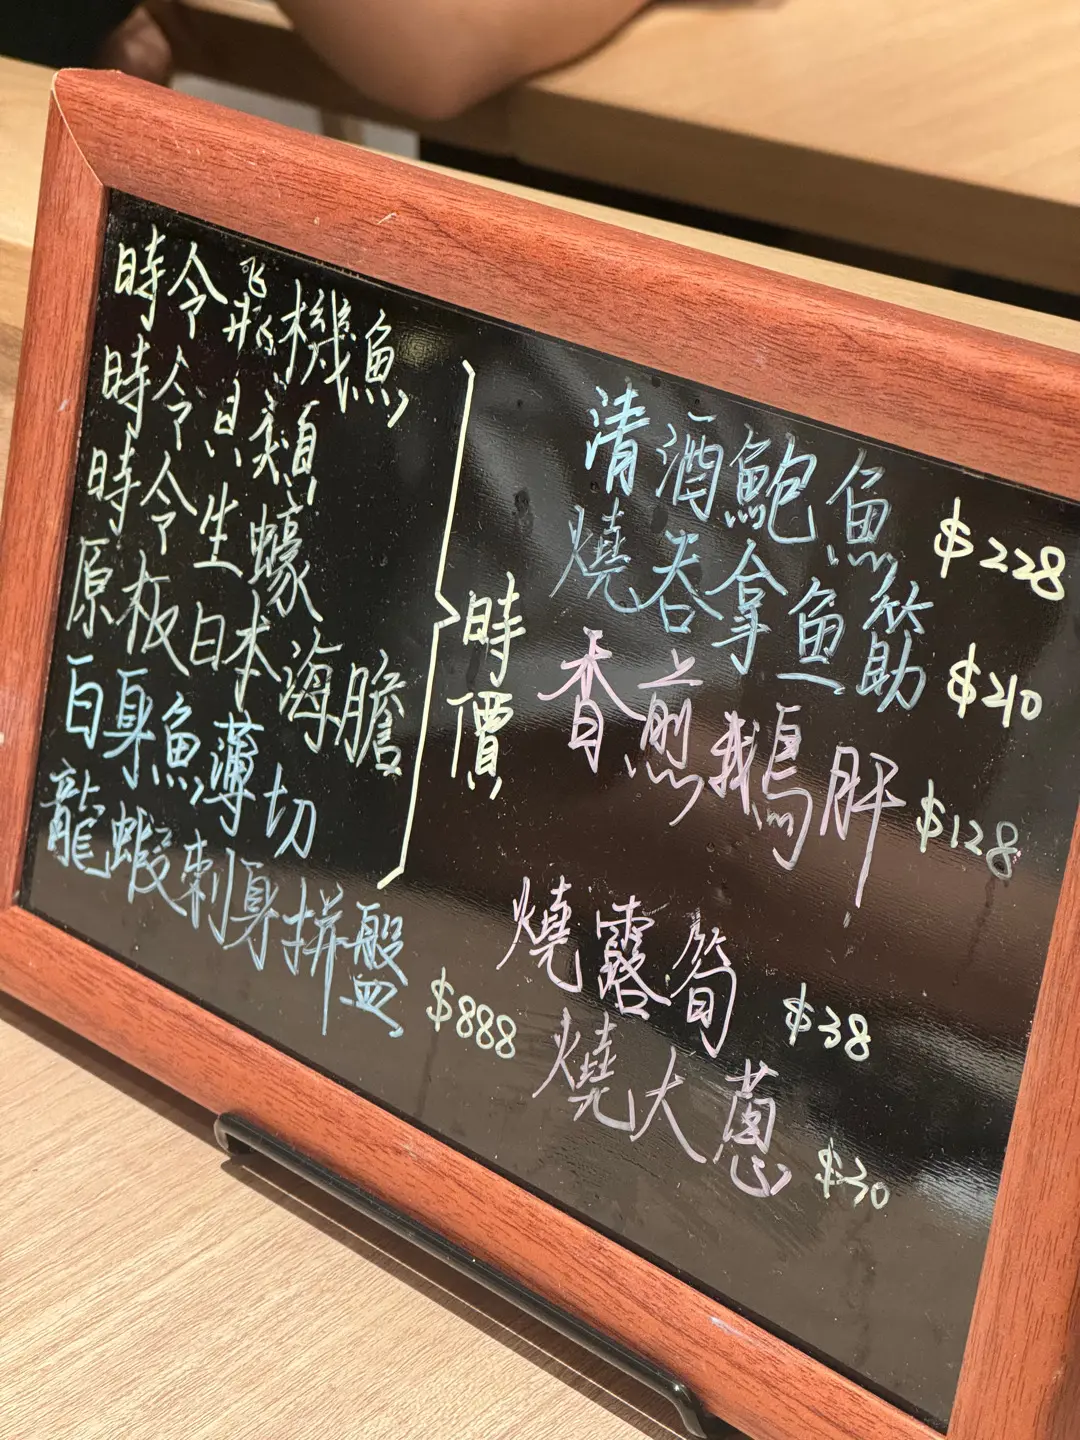 時令飛機魚
時令貝類
時令生蠔
原板日本海膽
白身魚薄切
龍蝦刺身拼盤 $888
時價
清酒鮑魚 $228
燒吞拿魚筋 $210
香煎鵝肝 $128
燒露筍 $38
燒大蔥 $30